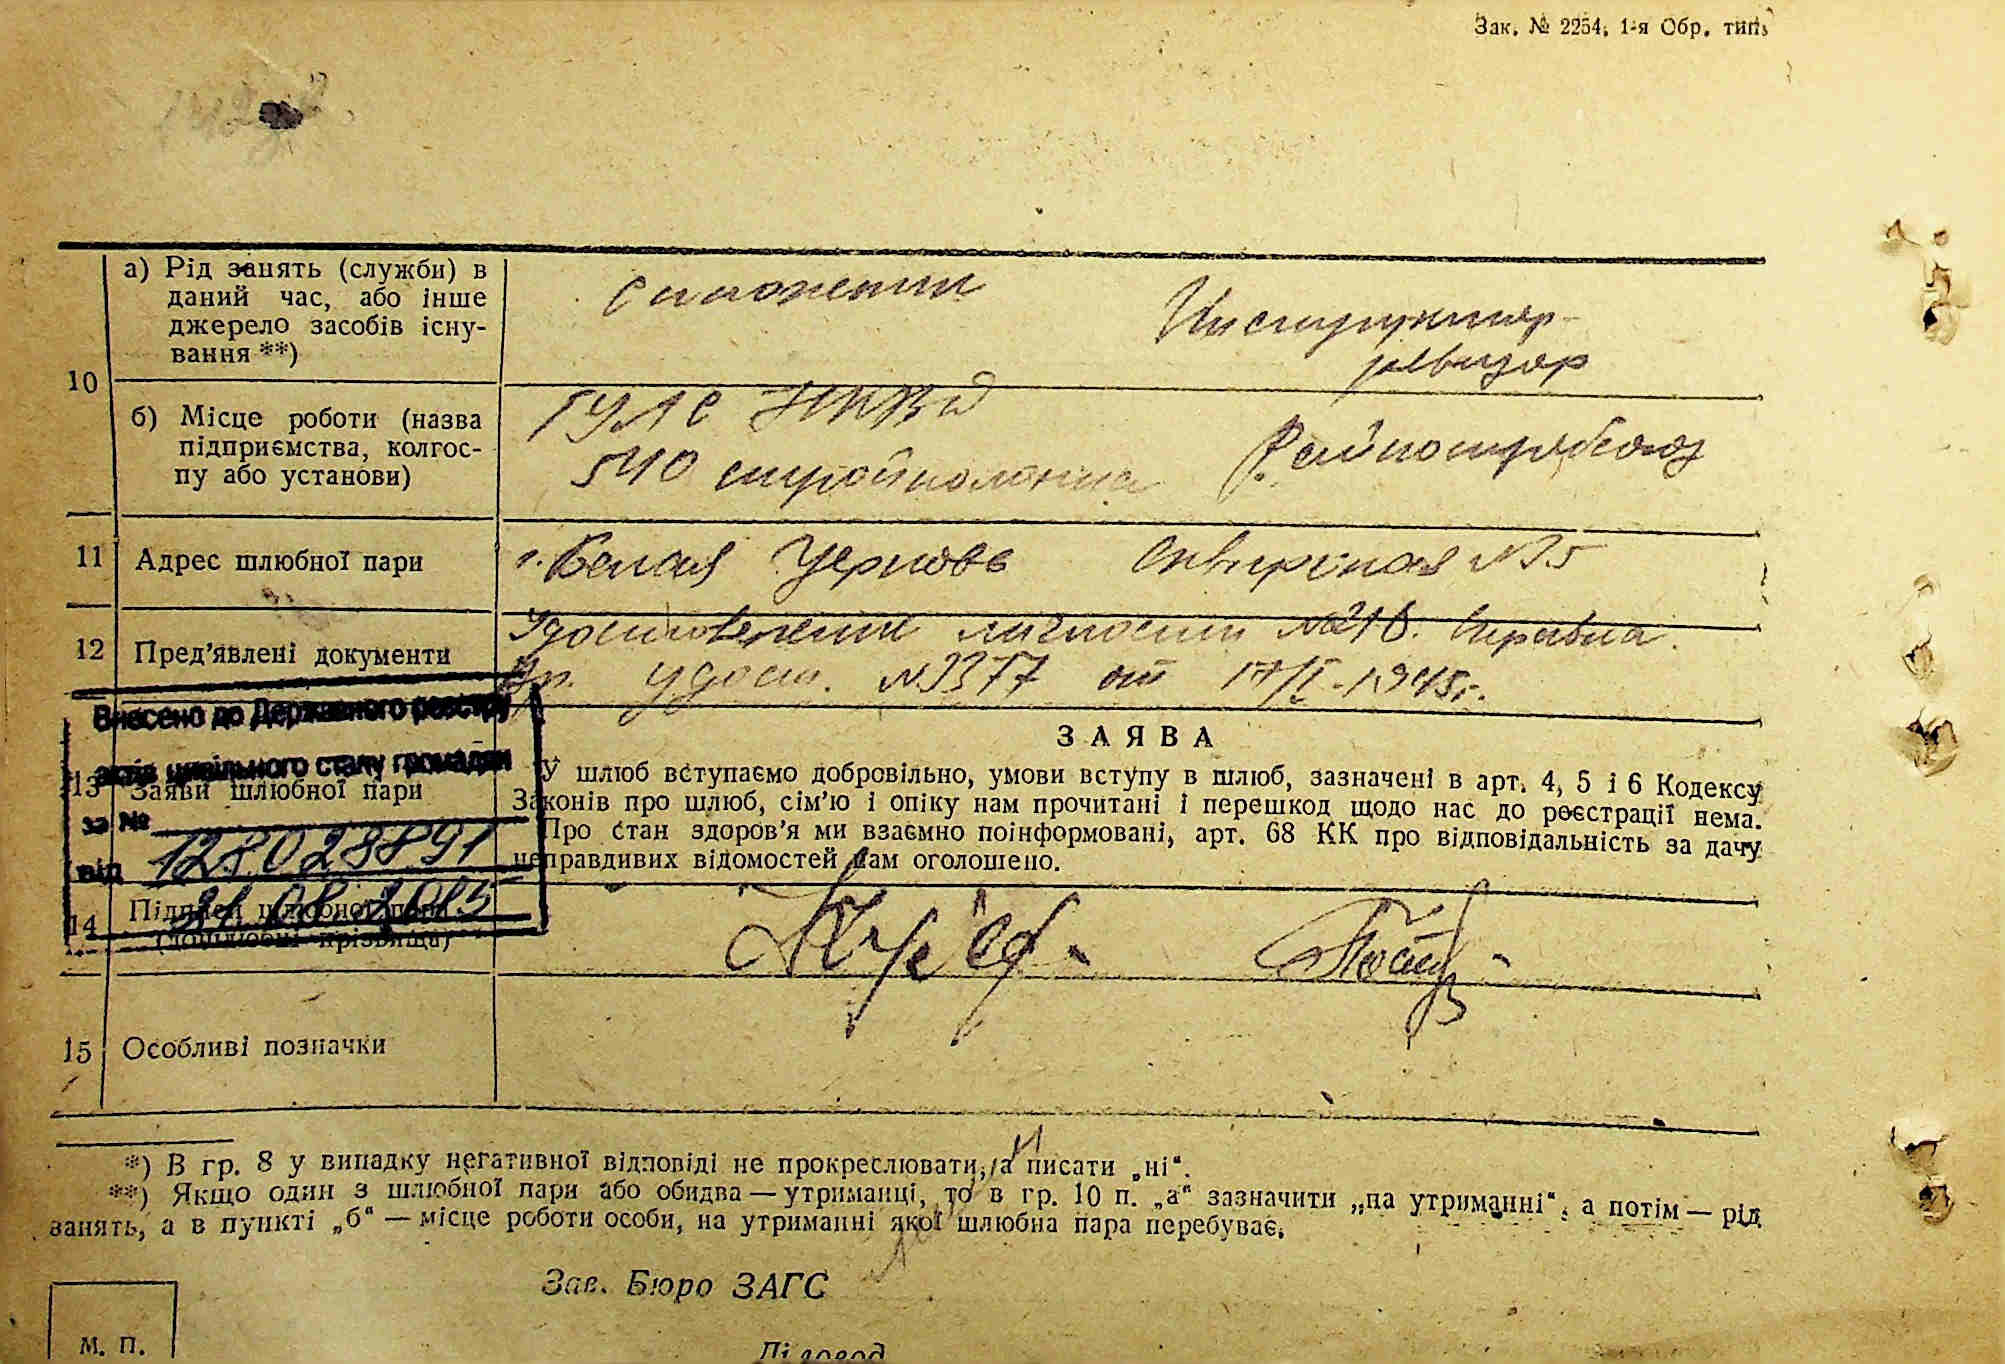 Зак. № 2254. 1-я Обр. тип.
10
а) Рід занять (служби) в
даний час, або інше
джерело засобів існу-
вання **)
Инструктор-
ревизор
б) Місце роботи (назва
підприємства, колгос-
пу або установи)
ГУЛС НКВД
540 стройколонна
Райпотребсоюз
11
Адрес шлюбної пари
г. Белая Церковь Сквирская №
12
Пред’явлені документи
Удостоверение личности №216. Справка
удост. №3377 от 17/I-1945г.
Внесено до Державного реєстру
актів цивільного стану громадян
за №
128028891
від
ЗАЯВА
13
Заяви шлюбної пари
У шлюб вступаємо добровільно, умови вступу в шлюб, зазначені в арт. 4, 5 і 6 Кодексу
Законів про шлюб, сім’ю і опіку нам прочитані і перешкод щодо нас до реєстрації нема.
Про стан здоров’я ми взаємно поінформовані, арт. 68 КК про відповідальність за дачу
неправдивих відомостей нам оголошено.
14
Підписи шлюбної пари
(дошлюбні прізвища)
15
Особливі позначки
*) В гр. 8 у випадку негативної відповіді не прокреслювати, а писати „ні“.
**) Якщо один з шлюбної пари або обидва — утриманці, то в гр. 10 п. „а“ зазначити „на утриманні“, а потім — рід
занять, а в пункті „б“ — місце роботи особи, на утриманні якої шлюбна пара перебуває.
Зав. Бюро ЗАГС
М. П.
Діловод